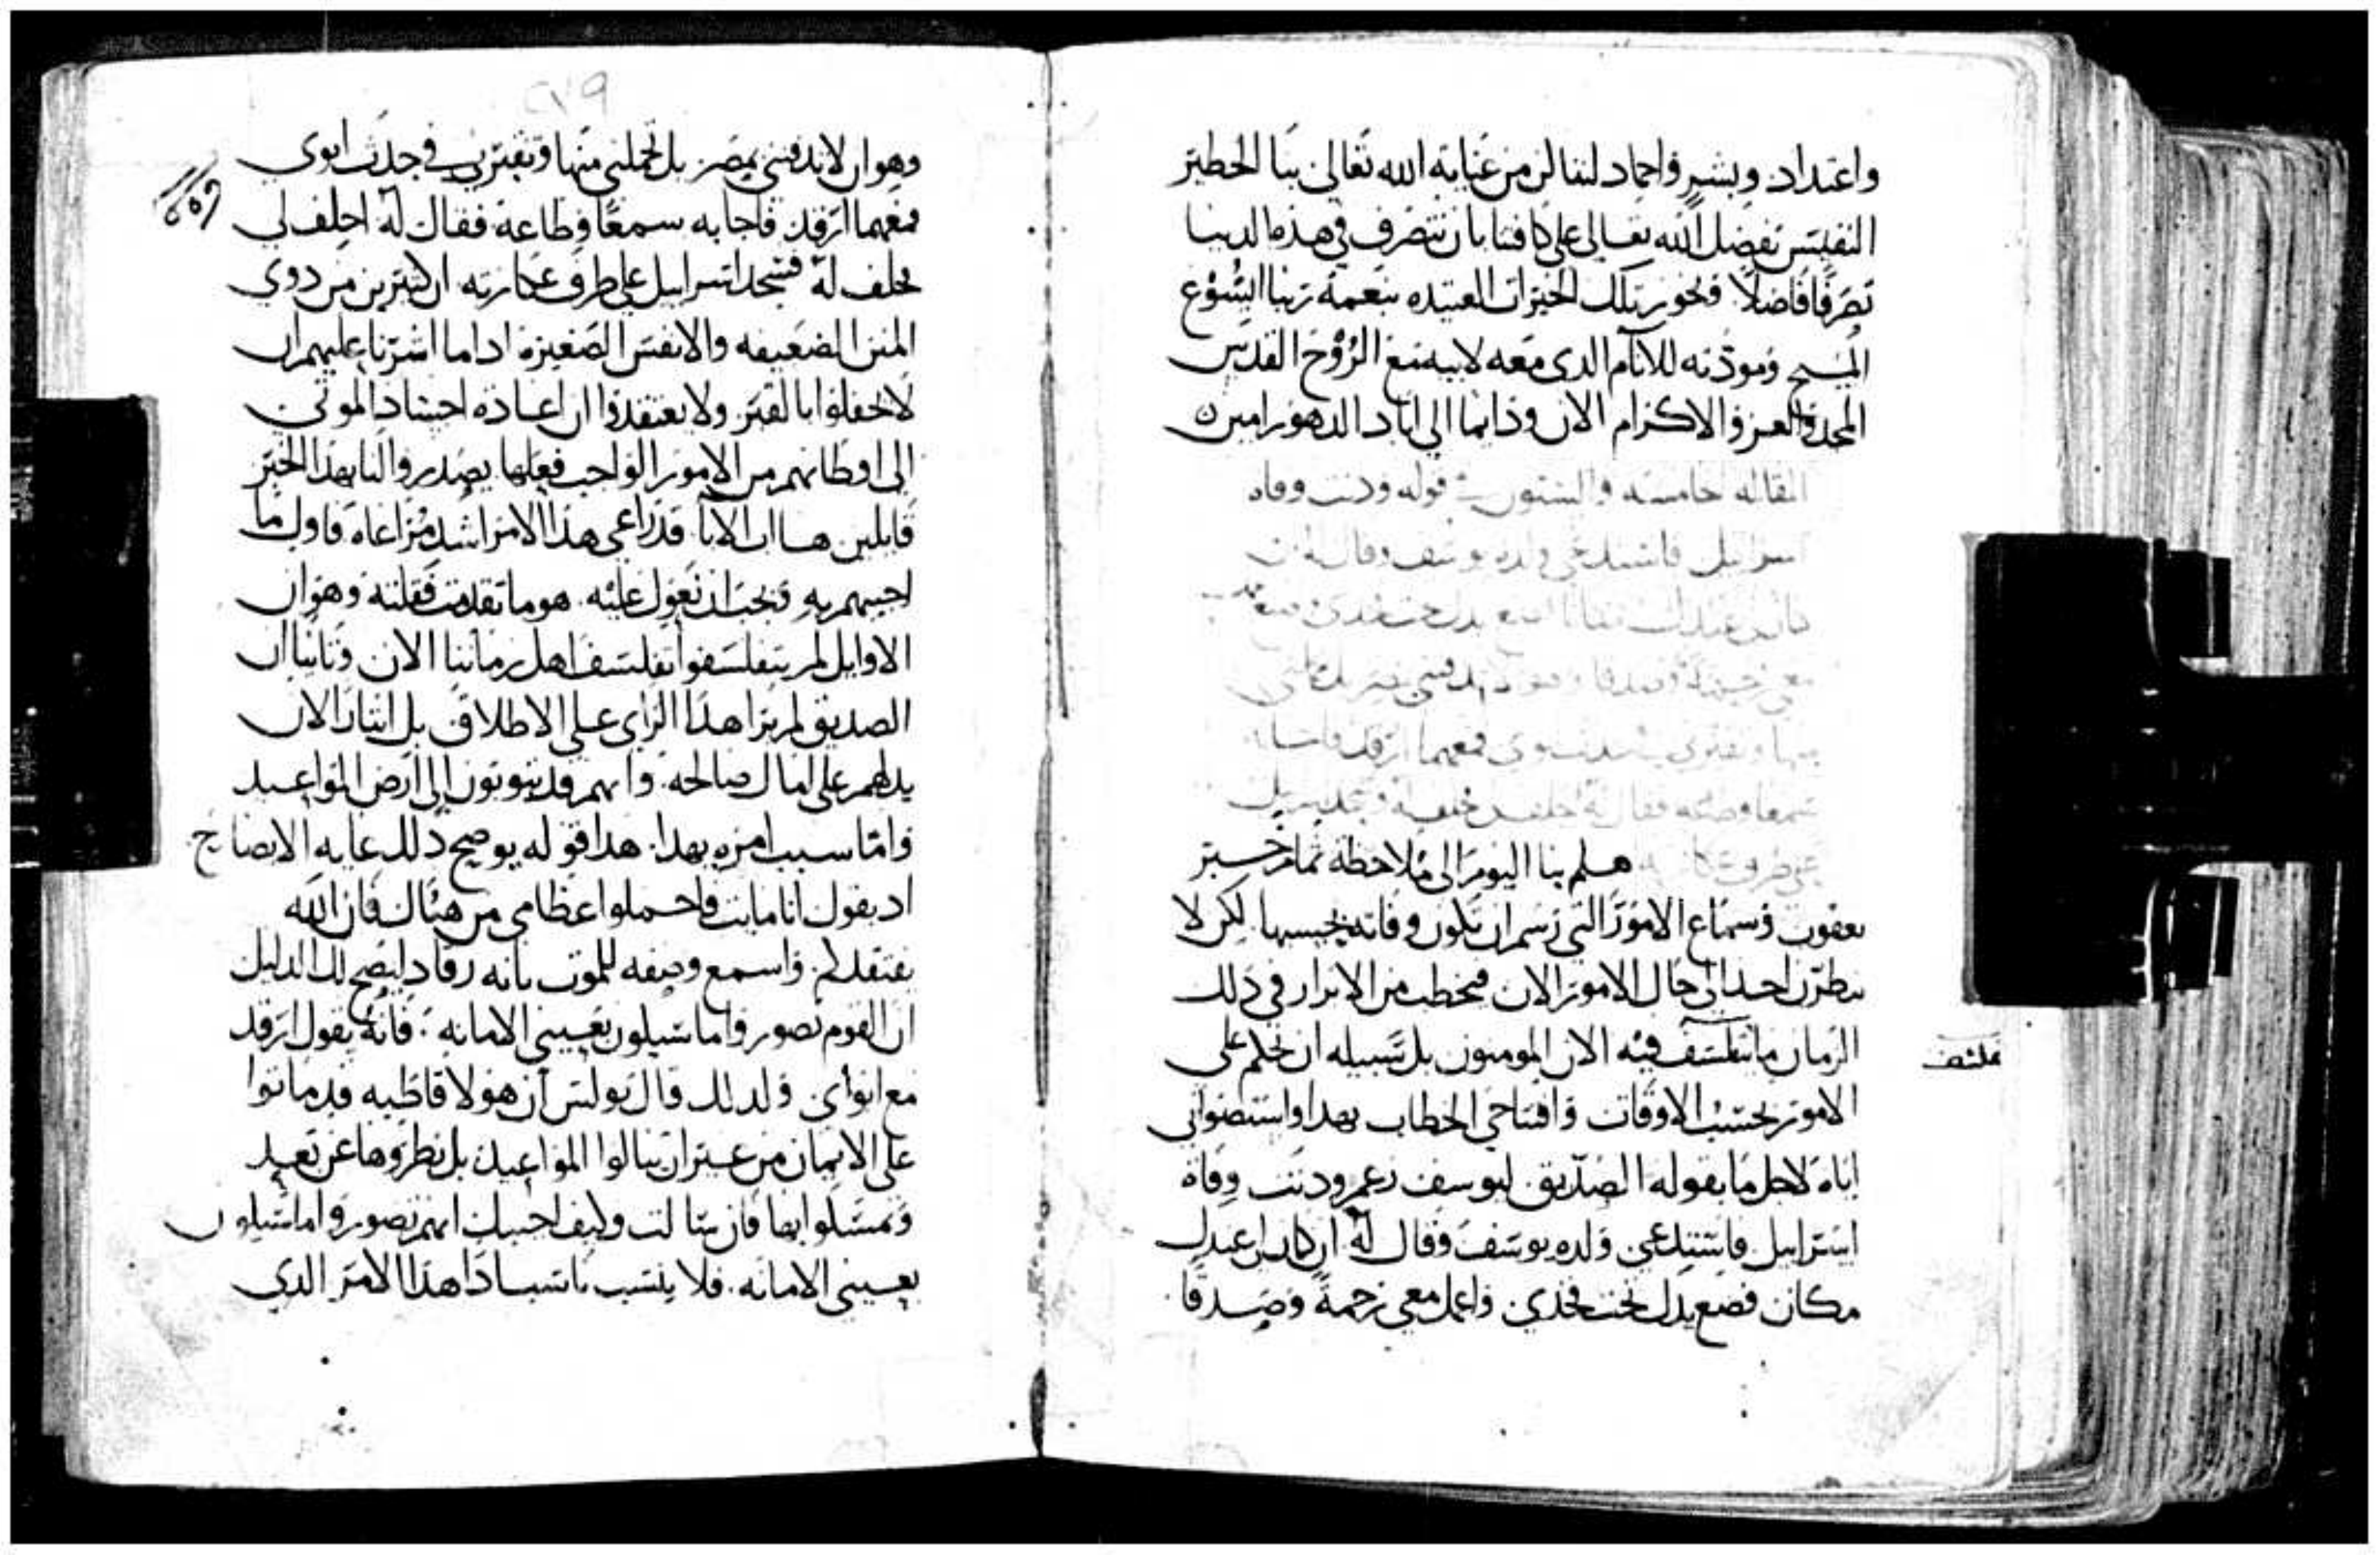 واعتداد وبشير واحماد لننال من عناية الله تعالى بنا الخطير
النفيس تفضل الله تعالى على كافتنا بان نتصرف في هذه الدنيا
تصرفا فاضلا ونحوز تلك الخيرات العتيده بنعمة ربنا ايسوع
المسيح ومودته للانام الدي معه لابيه مع الروح القدس
المجد والعز والاكرام الان ودايما الى اباد الدهور امين
المقاله خامسه والستون في قوله ودنت وفاه
اسراييل فاستدعي ولده يوسف وقال له ان
معي رحمة وصدقا وهو لا تدفني بمصر بل تحملني
منها وتقبرني في جدث ابوي فمعهما ارقد فاجابه
سمعا وطاعه فقال له احلف لي فحلف له فسجد اسراييل
على طرف عكازته هلم بنا اليوم الى ملاحظة تمام خبر
يعقوب وسماع الامور التي رسم ان تكون وفاته بحسبها لكن لا
ينظرن احد الى حال الامور الان فيخطب من الابرار في ذلك
الزمان ما يتفلسف فيه الان المومنون بل سبيله ان يحكم على
الامور بحسب الاوقات وافتتاحي الخطاب بهدا واستصوابي
اياه لاجل ما يقوله الصديق ليوسف زعم ودنت وفاة
اسراييل فاستدعي ولده يوسف وقال له ان كان لي عندك
مكان فضع يدك تحت فخدي واعمل معي رحمة وصدقا
٢٧٩
وهو ان لا تدفني بمصر بل تحملني منها وتقبرني في جدث ابوي
فمعهما ارقد فاجابه سمعا وطاعة فقال له احلف لي
فحلف له فسجد اسراييل على طرف عكازته ان كثيرين من دوي
المنن الضعيفه والانفس الصغيرة ادا ما اشرنا عليهم ان
لا يحفلوا بالقبر ولا يعتقدوا ان اعادة اجساد الموتى
الى اوطانهم من الامور الواجب فعلها يصدروا لنا بهدا الخبر
قايلين ها ان الابا قد راعى هدا الامر اشد مراعاه فاول ما
اجيبهم به ويجب ان نعول عليه هو ما تقدمت فقلته وهو ان
الاوايل لم يتفلسفوا تفلسف اهل زماننا الان وثانيا ان
الصديق لم يرا هدا الراي على الاطلاق بل ايثارا لان
يدلهم على امال صالحه وانهم قد يتوبون الى ارض المواعيد
واما سبب امره بهدا هدا قوله يوضح دلك غاية الايضاح
اد يقول انا مايت فاحملوا عظامي من هناك فان الله
يفتقدكم واسمع وصفه للموت بانه رقاد ليصح لك الدليل
ان القوم تصوروا ما سيكون بعيني الامانه فانه يقول ارقد
مع ابواي ولدلك قال بولس ان هولا قاطبه قد ماتوا
على الايمان من غير ان ينالوا المواعيد بل نظروها عن بعد
وتمسكوا بها فان سالت وكيف اجيبك انهم تصوروا ما سيكون
بعيني الامانه فلا ينسب ناسب ادا هدا الامر الدي